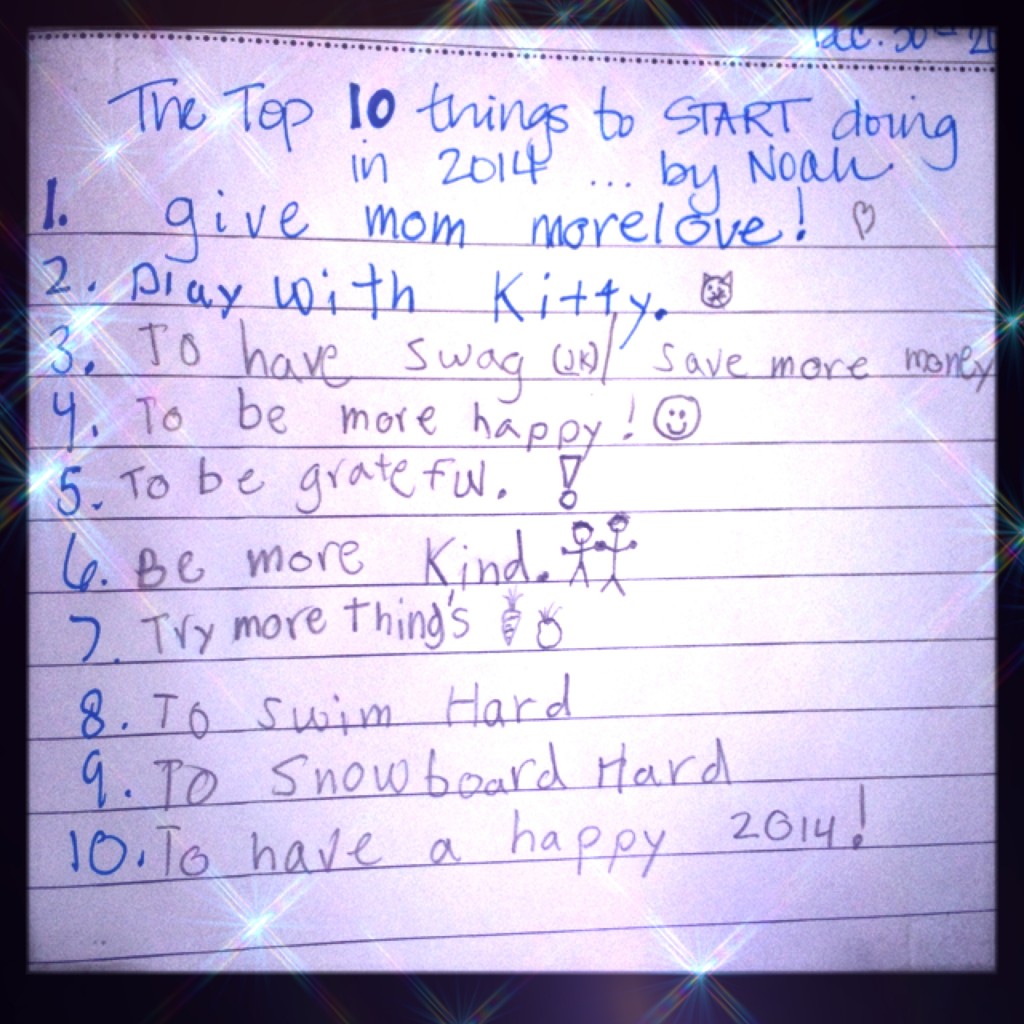 Dec. 30 - 20
The Top 10 things to START doing
in 2014 ... by Noah
1. give mom more love!
2. Play with Kitty.
3. To have swag (JK)/ save more money
4. To be more happy!
5. To be grateful. !
6. Be more Kind.
7. Try more thing's
8. To swim Hard
9. To Snowboard Hard
10. To have a happy 2014!